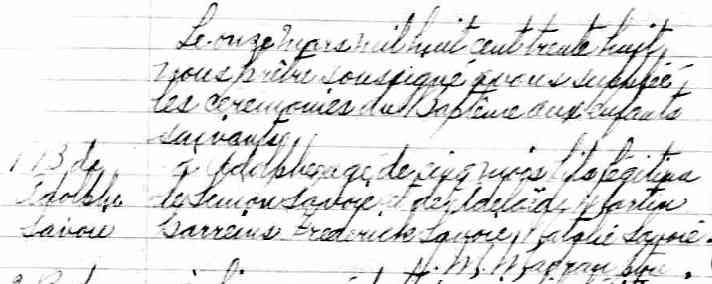 Le onze mars mil huit cent trente huit,
nous prêtre soussigné avons suppléé
les cérémonies du Baptême aux enfants
suivants
1 B de à Adolphe agé de cinq mois fils légitime
Adolphe de Simon Savoie et de Adelaïde Martin
Savoie Parreins Frederick Savoie, Natalie Savoie.
H. M. Madran ptre.